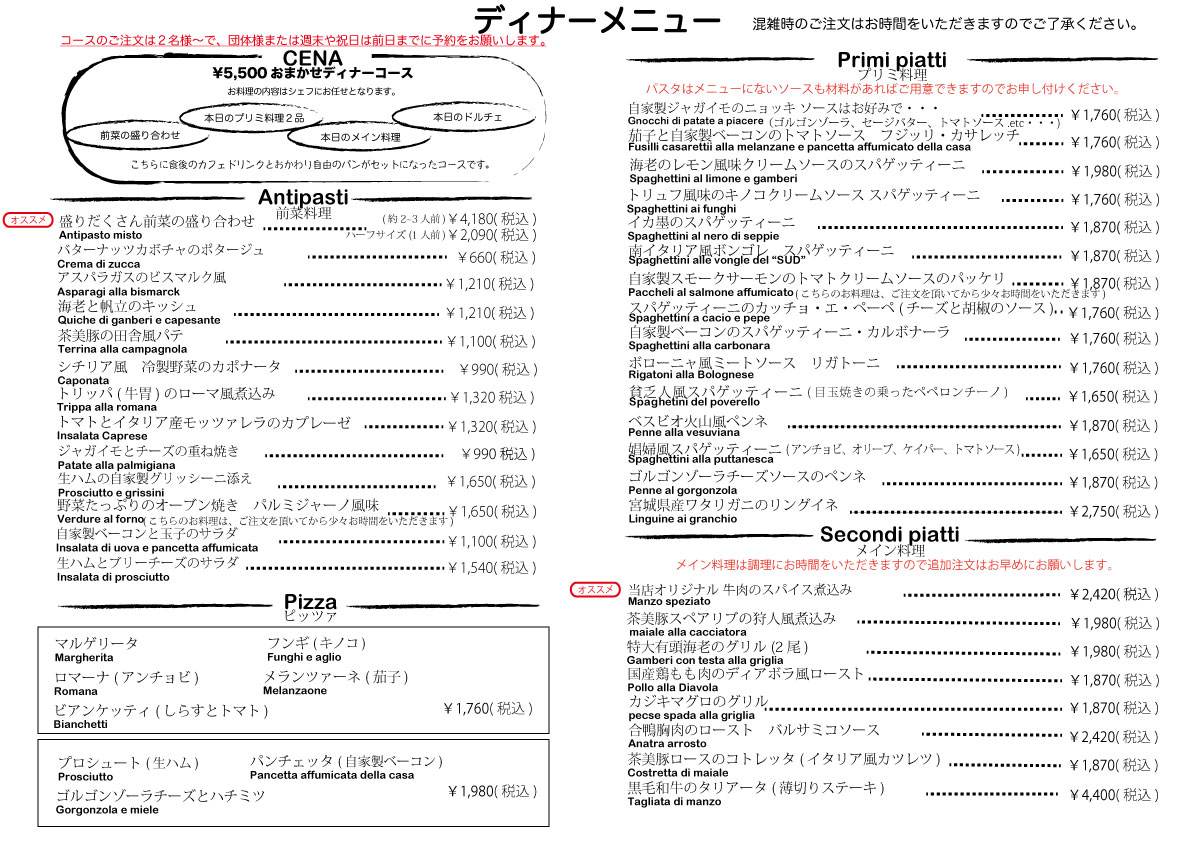 ディナーメニュー
混雑時のご注文はお時間をいただきますのでご了承ください。
コースのご注文は２名様〜で、団体様または週末や祝日は前日までに予約をお願いします。
CENA
¥5,500 おまかせディナーコース
お料理の内容はシェフにお任せとなります。
前菜の盛り合わせ
本日のプリミ料理２品
本日のメイン料理
本日のドルチェ
こちらに食後のカフェドリンクとおかわり自由のパンがセットになったコースです。
Antipasti
前菜料理
オススメ
盛りだくさん前菜の盛り合わせ (約 2-3 人前) ￥4,180( 税込 )
Antipasto misto ハーフサイズ (1 人前) ￥2,090( 税込 )
バターナッツカボチャのポタージュ ￥660( 税込 )
Crema di zucca
アスパラガスのビスマルク風 ￥1,210( 税込 )
Asparagi alla bismarck
海老と帆立のキッシュ ￥1,210( 税込 )
Quiche di ganberi e capesante
茶美豚の田舎風パテ ￥1,100( 税込 )
Terrina alla campagnola
シチリア風　冷製野菜のカポナータ ￥990( 税込 )
Caponata
トリッパ ( 牛胃 ) のローマ風煮込み ￥1,320 税込 )
Trippa alla romana
トマトとイタリア産モッツァレラのカプレーゼ ￥1,320( 税込 )
Insalata Caprese
ジャガイモとチーズの重ね焼き ￥990 税込 )
Patate alla palmigiana
生ハムの自家製グリッシーニ添え ￥1,650( 税込 )
Prosciutto e grissini
野菜たっぷりのオーブン焼き　パルミジャーノ風味 ￥1,650( 税込 )
Verdure al forno( こちらのお料理は、ご注文を頂いてから少々お時間をいただきます )
自家製ベーコンと玉子のサラダ ￥1,100( 税込 )
Insalata di uova e pancetta affumicata
生ハムとブリーチーズのサラダ ￥1,540( 税込 )
Insalata di prosciutto
Pizza
ピッツァ
マルゲリータ フンギ ( キノコ )
Margherita Funghi e aglio
ロマーナ ( アンチョビ ) メランツァーネ ( 茄子 )
Romana Melanzaone
ビアンケッティ ( しらすとトマト ) ￥1,760( 税込 )
Bianchetti
プロシュート ( 生ハム ) パンチェッタ ( 自家製ベーコン )
Prosciutto Pancetta affumicata della casa
ゴルゴンゾーラチーズとハチミツ ￥1,980( 税込 )
Gorgonzola e miele
Primi piatti
プリミ料理
パスタはメニューにないソースも材料があればご用意できますのでお申し付けください。
自家製ジャガイモのニョッキ ソースはお好みで・・・ ￥1,760( 税込 )
Gnocchi di patate a piacere (ゴルゴンゾーラ、セージバター、トマトソース .etc・・・)
茄子と自家製ベーコンのトマトソース　フジッリ・カサレッチ ￥1,760( 税込 )
Fusilli casarettii alla melanzane e pancetta affumicato della casa
海老のレモン風味クリームソースのスパゲッティーニ ￥1,980( 税込 )
Spaghettini al limone e gamberi
トリュフ風味のキノコクリームソース スパゲッティーニ ￥1,760( 税込 )
Spaghettini ai funghi
イカ墨のスパゲッティーニ ￥1,870( 税込 )
Spaghettini al nero di seppie
南イタリア風ボンゴレ　スパゲッティーニ ￥1,870( 税込 )
Spaghettini alle vongle del “SUD”
自家製スモークサーモンのトマトクリームソースのパッケリ ￥1,870( 税込 )
Paccheli al salmone affumicato ( こちらのお料理は、ご注文を頂いてから少々お時間をいただきます )
スパゲッティーニのカッチョ・エ・ペーペ ( チーズと胡椒のソース ) ￥1,760( 税込 )
Spaghettini a cacio e pepe
自家製ベーコンのスパゲッティーニ・カルボナーラ ￥1,760( 税込 )
Spaghettini alla carbonara
ボローニャ風ミートソース　リガトーニ ￥1,760( 税込 )
Rigatoni alla Bolognese
貧乏人風スパゲッティーニ ( 目玉焼きの乗ったペペロンチーノ ) ￥1,650( 税込 )
Spaghetini del poverello
ベスビオ火山風ペンネ ￥1,870( 税込 )
Penne alla vesuviana
娼婦風スパゲッティーニ (アンチョビ、オリーブ、ケイパー、トマトソース) ￥1,650( 税込 )
Spaghettini alla puttanesca
ゴルゴンゾーラチーズソースのペンネ ￥1,870( 税込 )
Penne al gorgonzola
宮城県産ワタリガニのリングイネ ￥2,750( 税込 )
Linguine ai granchio
Secondi piatti
メイン料理
メイン料理は調理にお時間をいただきますので追加注文はお早めにお願いします。
オススメ
当店オリジナル 牛肉のスパイス煮込み ￥2,420( 税込 )
Manzo speziato
茶美豚スペアリブの狩人風煮込み ￥1,980( 税込 )
maiale alla cacciatora
特大有頭海老のグリル (２尾 ) ￥1,980( 税込 )
Gamberi con testa alla griglia
国産鶏もも肉のディアボラ風ロースト ￥1,870( 税込 )
Pollo alla Diavola
カジキマグロのグリル ￥1,870( 税込 )
pecse spada alla griglia
合鴨胸肉のロースト　バルサミコソース ￥2,420( 税込 )
Anatra arrosto
茶美豚ロースのコトレッタ ( イタリア風カツレツ ) ￥1,870( 税込 )
Costretta di maiale
黒毛和牛のタリアータ ( 薄切りステーキ ) ￥4,400( 税込 )
Tagliata di manzo